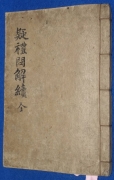 疑禮問解續 全